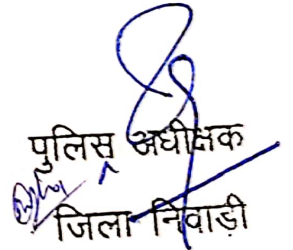 पुलिस अधीक्षक
जिला निवाड़ी